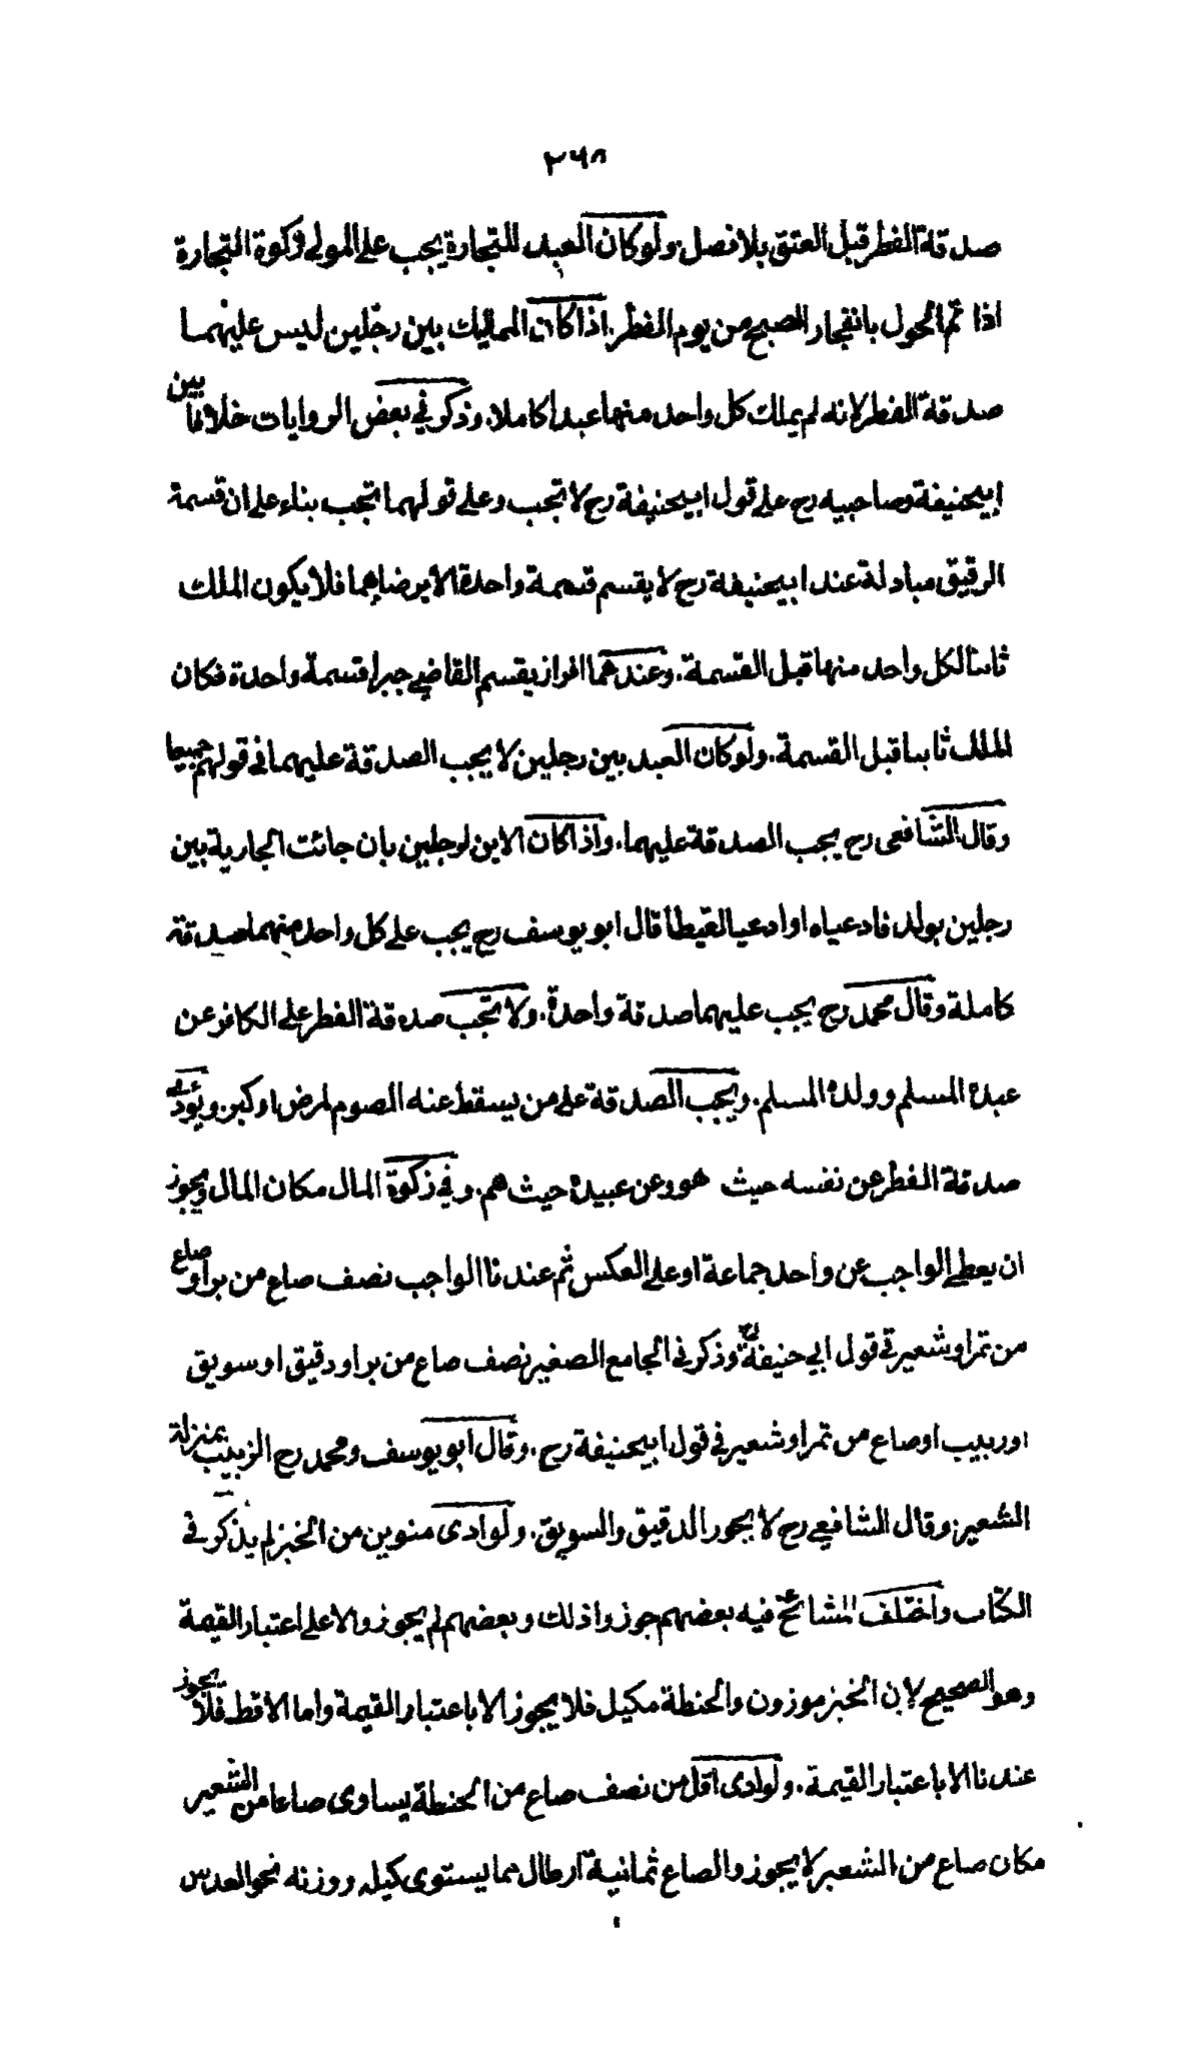 ٢٦٨
صدقة الفطر قبل العتق بلا فصل ولو كان العبد للتجارة يجب على المولى زكوة التجارة
اذا تم الحول بانفجار الصبح من يوم الفطر. اذا كان المماليك بين رجلين ليس عليهما
صدقة الفطر لانه لم يملك كل واحد منهما عبدا كاملا. وذكر في بعض الروايات خلافا بين
ابيحنيفة وصاحبيه رح على قول ابيحنيفة رح لا تجب وعلى قولهما تجب بناء على ان قسمة
الرقيق مبادلة عند ابيحنيفة رح لا يقسم قسمة واحدة الا برضاهما فلا يكون الملك
ثابتا لكل واحد منهما قبل القسمة. وعندهما افراز يقسم القاضي جبرا قسمة واحدة فكان
الملك ثابتا قبل القسمة. ولو كان العبد بين رجلين لا يجب الصدقة عليهما في قولهم جميعا
وقال الشافعى رح يجب الصدقة عليهما. واذا كان الابن لرجلين بان جائت الجارية بين
رجلين بولد فادعياه او ادعيا لقيطا قال ابو يوسف رح يجب على كل واحد منهما صدقة
كاملة وقال محمد رح يجب عليهما صدقة واحدة. ولا تجب صدقة الفطر على الكافر عن
عبده المسلم وولده المسلم. ويجب الصدقة على من يسقط عنه الصوم لمرض او كبر ويؤدي
صدقة الفطر عن نفسه حيث هو وعن عبيده حيث هم. وفي زكوة المال مكان المال ويجوز
ان يعطى الواجب عن واحد جماعة او على العكس ثم عندنا الواجب نصف صاع من بر او صاع
من تمر او شعير في قول ابي حنيفة رح وذكر في الجامع الصغير نصف صاع من بر او دقيق او سويق
او زبيب او صاع من تمر او شعير في قول ابيحنيفة رح. وقال ابو يوسف ومحمد رح الزبيب بمنزلة
الشعير وقال الشافعي رح لا يجوز الدقيق والسويق. ولو ادى منوين من الخبز لم يذكر في
الكتاب واختلف المشائخ فيه بعضهم جوزوا ذلك وبعضهم لم يجوزوا الا على اعتبار القيمة
وهو الصحيح لان الخبز موزون والحنطة مكيل فلا يجوز الا باعتبار القيمة واما الاقط فلا يجوز
عندنا الا باعتبار القيمة. ولو ادى اقل من نصف صاع من الحنطة يساوى صاعا من الشعير
مكان صاع من الشعير لا يجوز والصاع ثمانية ارطال مما يستوى كيله ووزنه نحو العدس